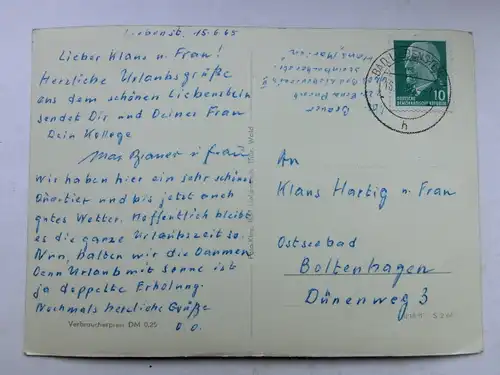 Liebenst. 15.6.65
Lieber Klaus u. Frau!
Herzliche Urlaubsgrüße
aus dem schönen Liebenstein
sendet Dir und Deiner Frau
Dein Kollege
Max Brauer u. Frau
Wir haben hier ein sehr schönes
Quartier und bis jetzt auch
gutes Wetter. Hoffentlich bleibt
es die ganze Urlaubszeit so.
Nun, halten wir die Daumen
Denn Urlaub mit Sonne ist
ja doppelte Erholung.
Nochmals herzliche Grüße
D.O.
Verbraucherpreis DM 0,25
Brauer
BAD LIEBENST
h
10
DEUTSCHE
DEMOKRATISCHE REPUBLIK
An
Klaus Hartig u. Frau
Ostseebad
Boltenhagen
Dünenweg 3